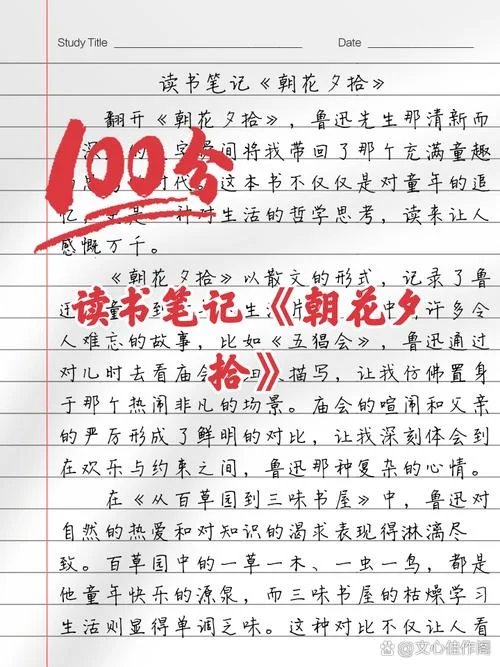 Study Title
Date
读书笔记《朝花夕拾》
翻开《朝花夕拾》，鲁迅先生那清新而
间将我带回了那个充满童趣
100分
代。这本书不仅仅是对童年的追
对生活的哲学思考，读来让人
感慨万千。
《朝花夕拾》以散文的形式，记录了鲁
读书笔记《朝花夕
许多令
人难忘的故事，比如《五猖会》，鲁迅通过
拾》
对儿时去看庙会
描写，让我仿佛置身
于那个热闹非凡的场景。庙会的喧闹和父亲
的严厉形成了鲜明的对比，让我深刻体会到
在欢乐与约束之间，鲁迅那种复杂的心情。
在《从百草园到三味书屋》中，鲁迅对
自然的热爱和对知识的渴求表现得淋漓尽
致。百草园中的一草一木、一虫一鸟，都是
他童年快乐的源泉，而三味书屋的枯燥学习
生活则显得单调乏味。这种对比不仅让人看
@文心佳作阁